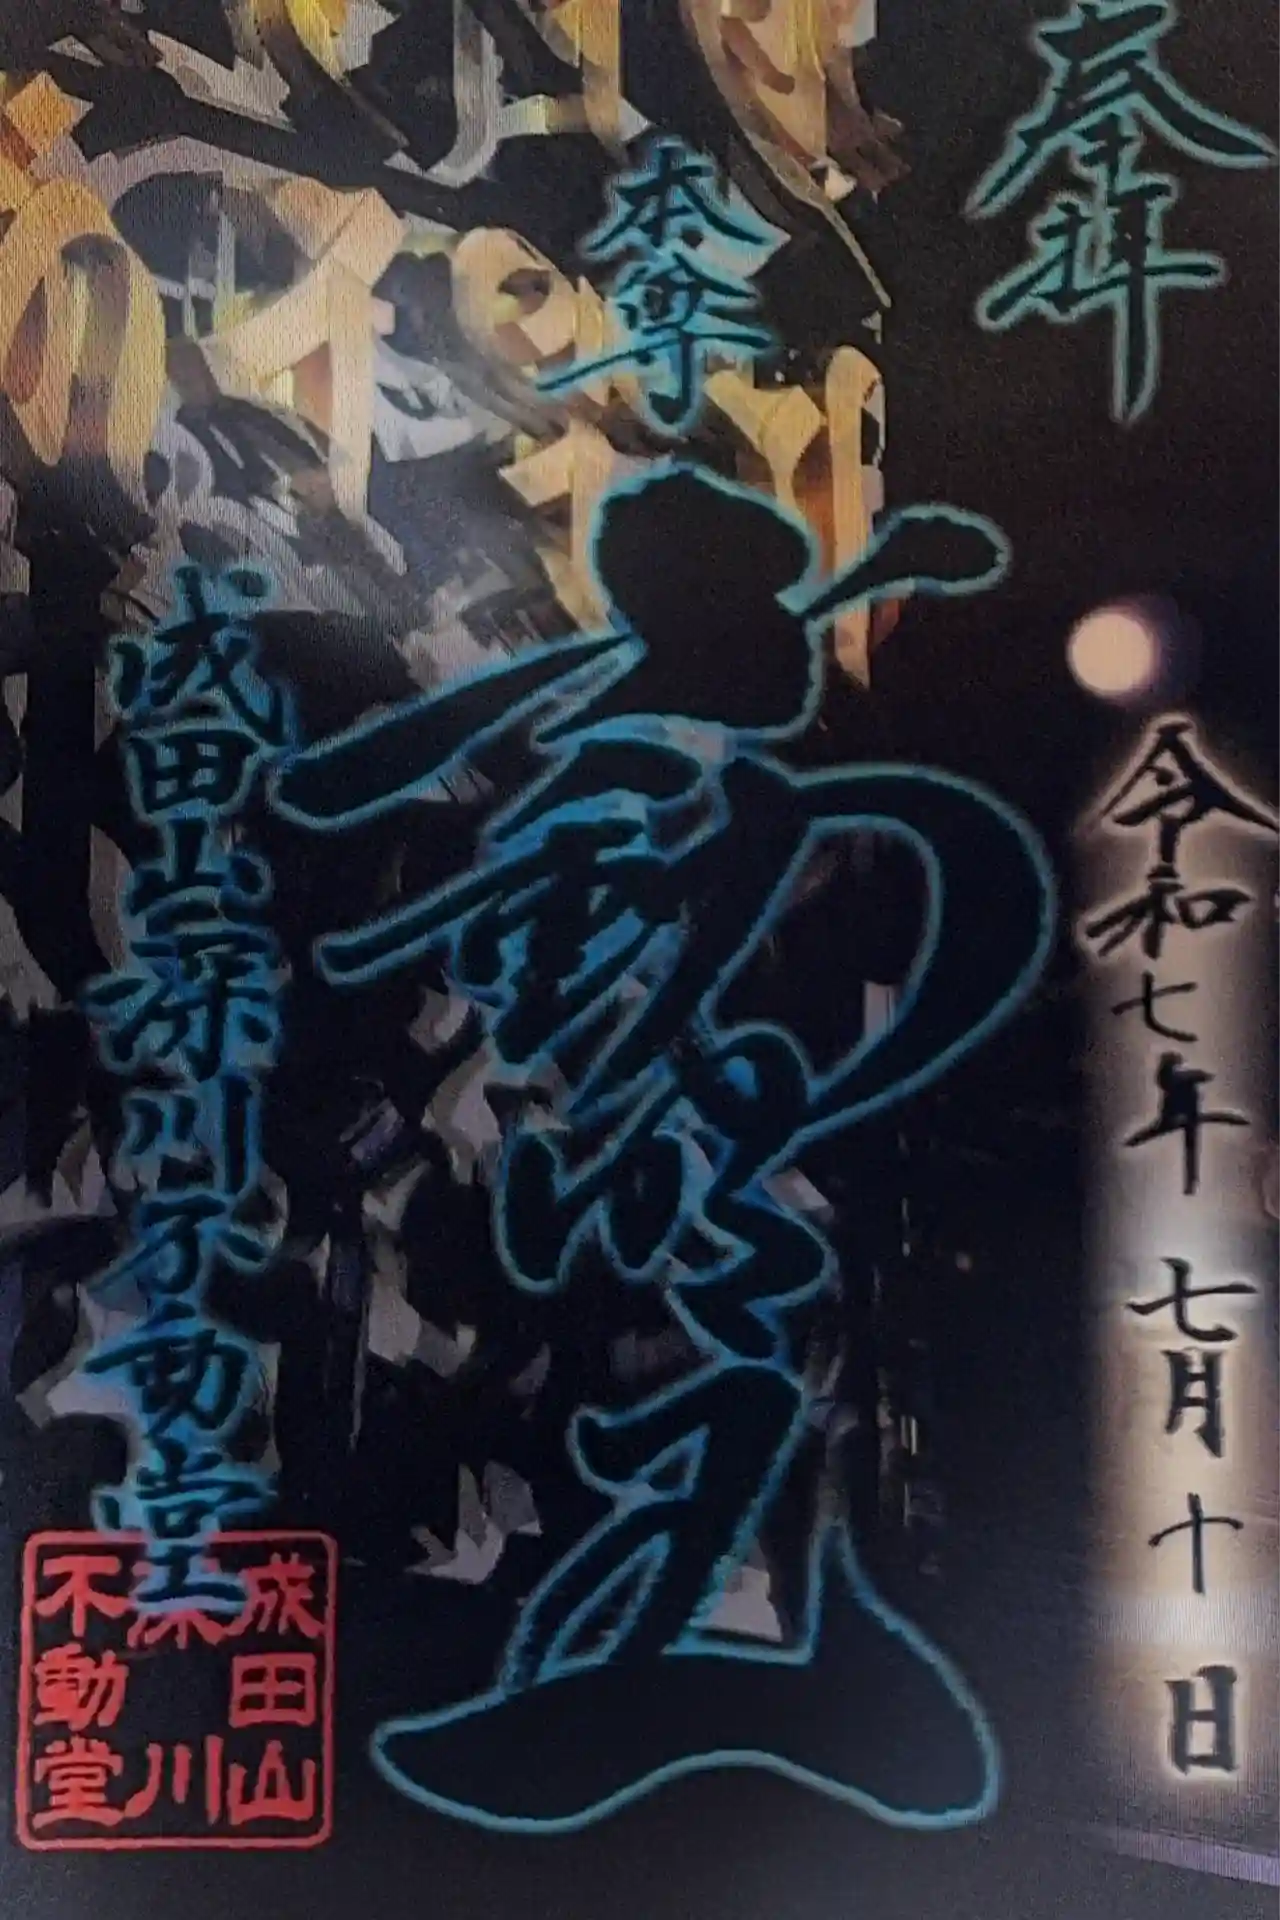 奉拝
令和七年 七月十日
本尊
不動明王
成田山深川不動堂
成田山
深川
不動堂